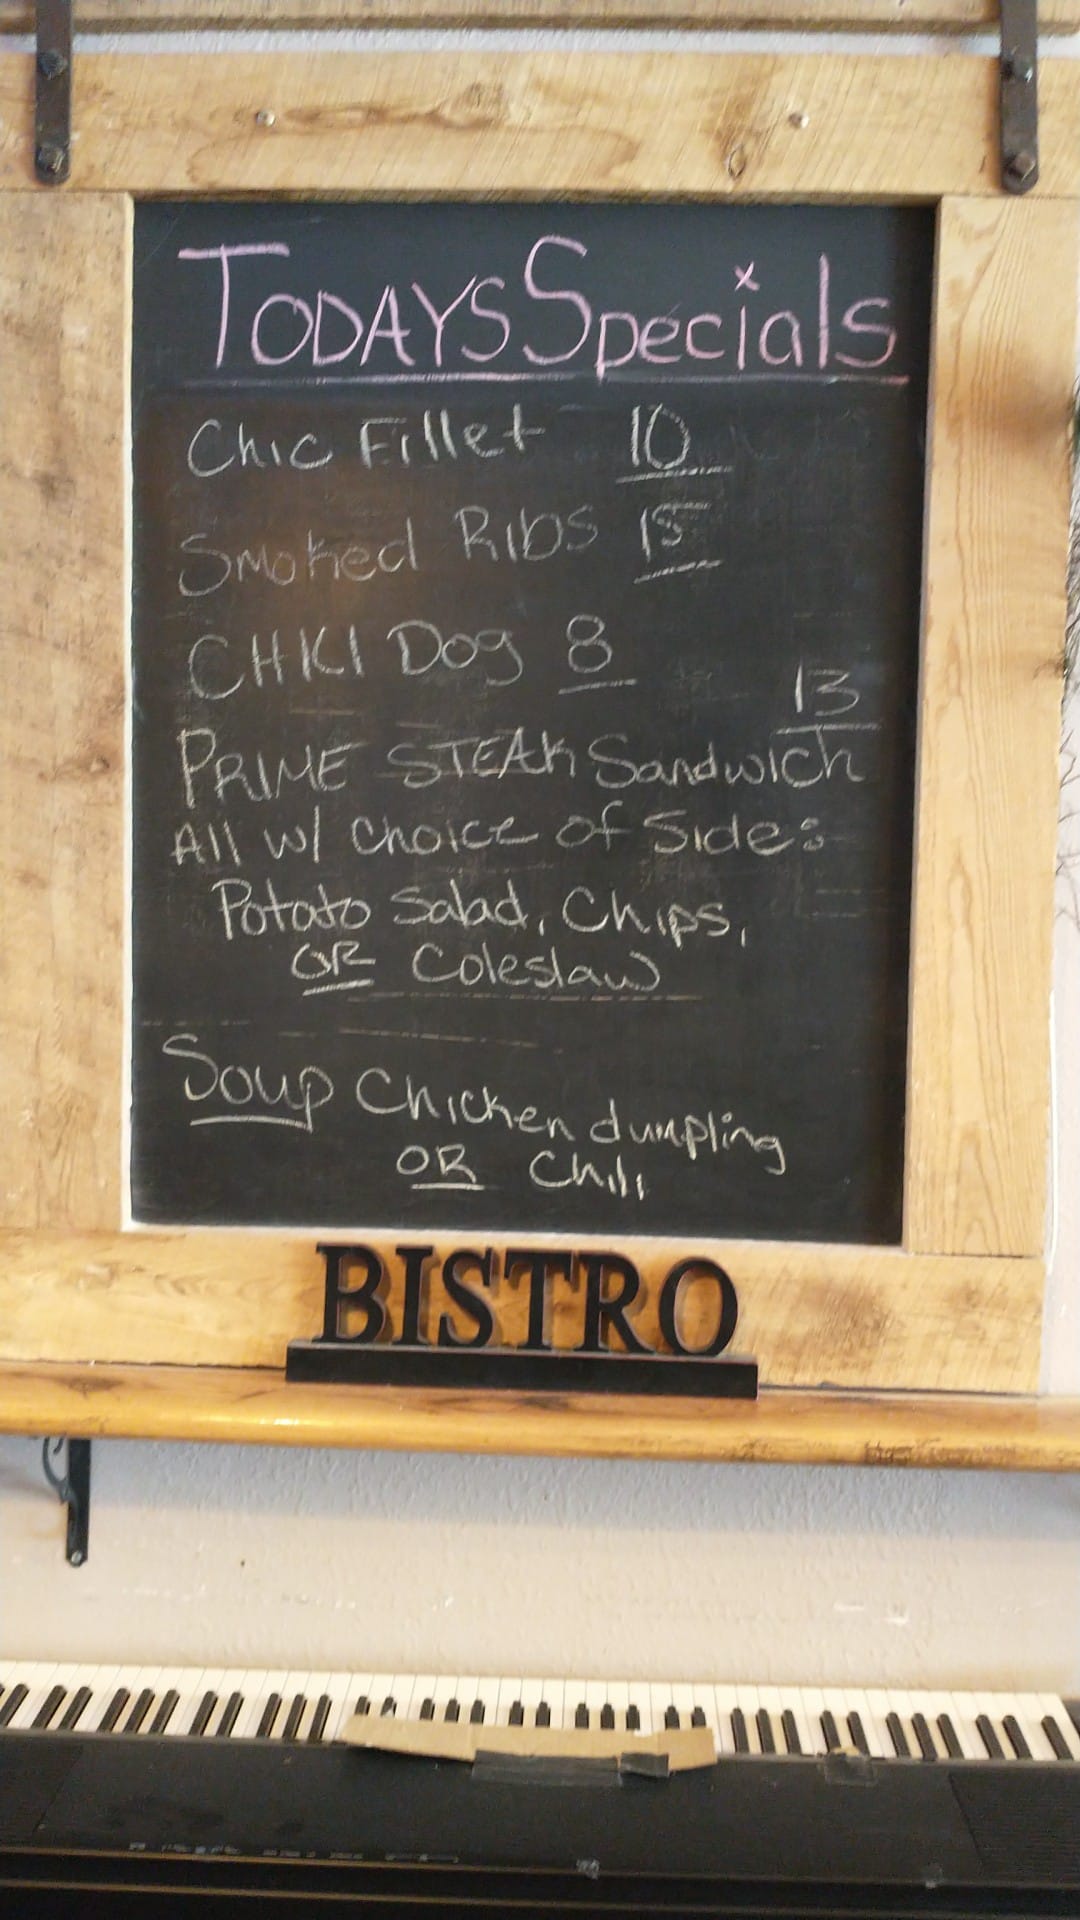 TODAYS Specials
Chic Fillet 10
Smoked Ribs 15
CHKI Dog 8
13
PRIME STEAK Sandwich
All w/ choice of Side:
Potato Salad, Chips,
OR Coleslaw
Soup Chicken dumpling
OR Chili
BISTRO